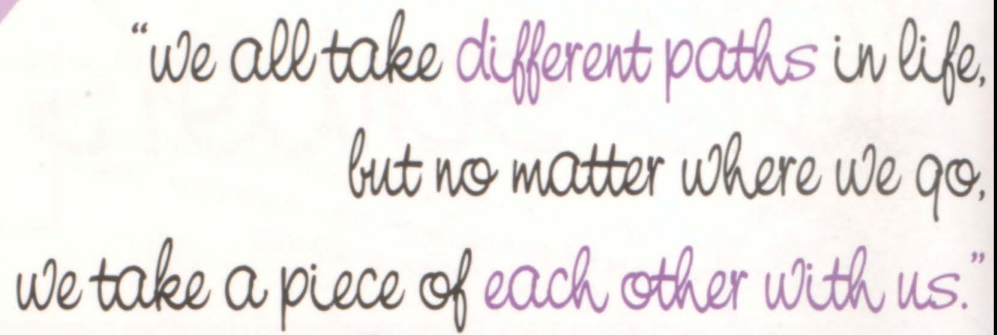 “we all take different paths in life,
but no matter where we go,
we take a piece of each other with us.”